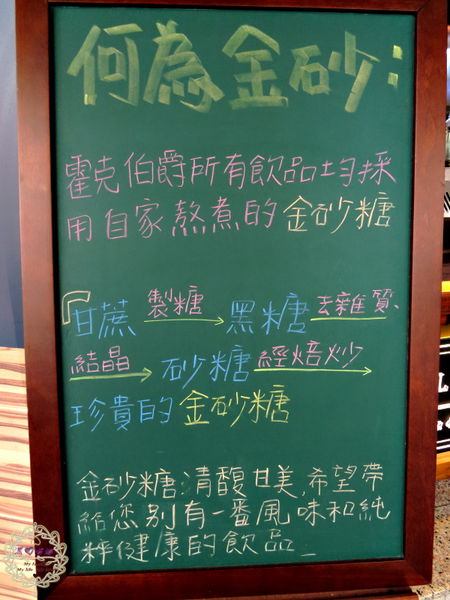 何為金砂:
霍克伯爵所有飲品均採
用自家熬煮的金砂糖
「甘蔗 製糖 黑糖 去雜質、
結晶 砂糖 經焙炒
珍貴的金砂糖
金砂糖:清馥甘美,希望帶
給您別有一番風味和純
粹健康的飲品_